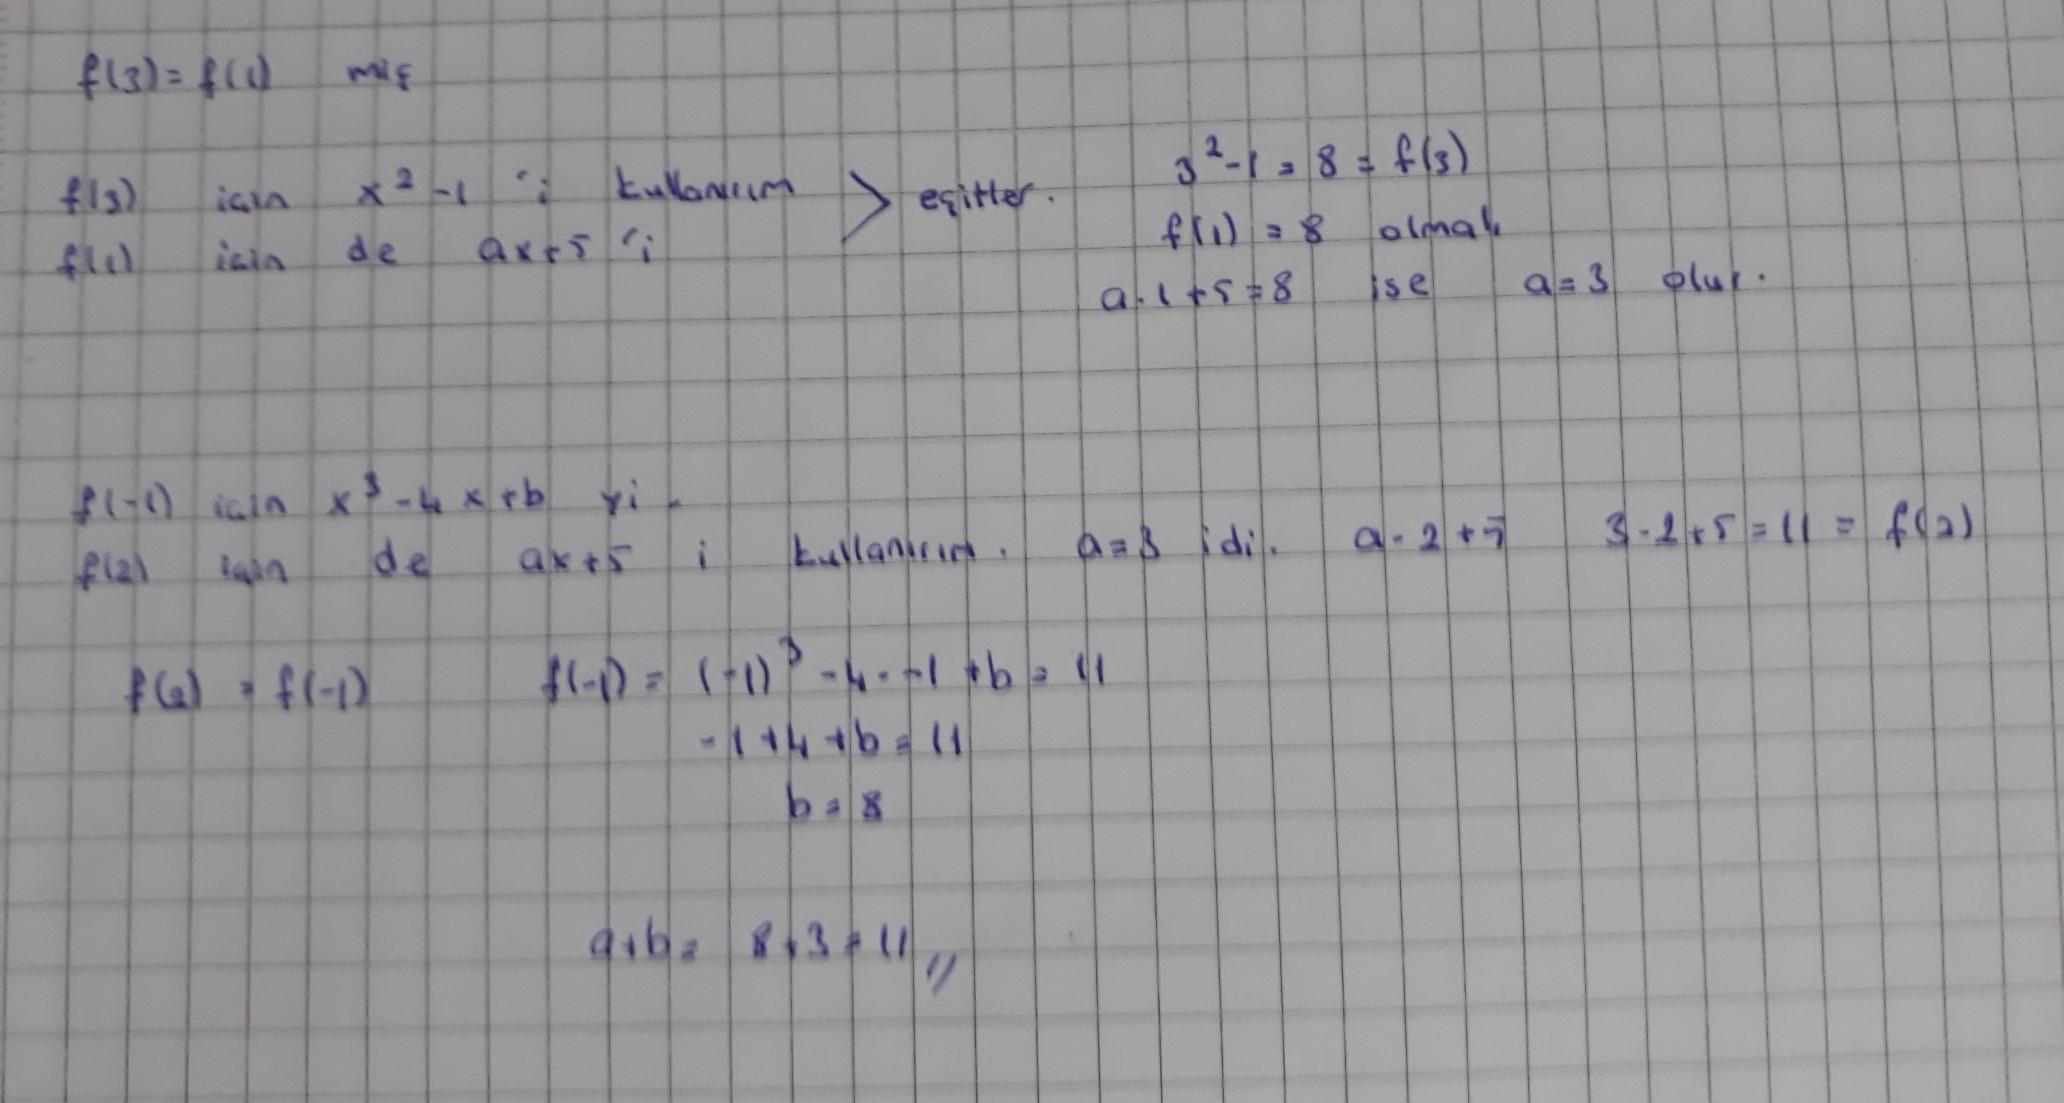 f(3) = f(1) miş
f(3) için x² - 1 'i kullanırım > eşittir.
f(1) için de ax+5 'i
3² - 1 = 8 = f(3)
f(1) = 8 olmalı
a.1+5=8 ise a=3 olur.
f(-1) için x³ - 4x+b yi
f(2) için de ax+5 i kullanırım. a=3 idi. a.2+5 3.2+5=11 = f(2)
f(2) = f(-1) f(-1) = (-1)³ - 4. -1 +b = 11
-1+4+b = 11
b = 8
a+b = 8+3 = 11 //